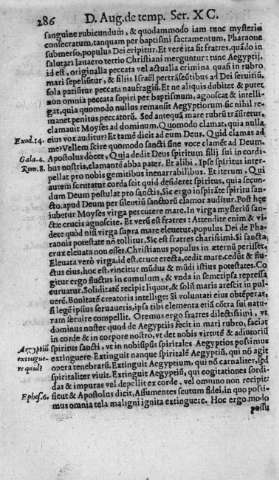 286 D. Aug. de temp. Ser. X C.
sanguine rubicundum, & quodammodo iam tunc mysterio
consecratum, tanquam per baptismi sacramentum, Pharaone
submerso, populus Dei eripitur. Et verè ita fit fratres, quãdo in
salutari lauacro tertio Christiani merguntur: tunc Aegyptij,
id est, originalia peccata vel actualia crimina quasi in rubro
mari sepeliuntur, & filiis Israel pertrãseũtibus ad Dei seruitiũ,
sola pariter peccata naufragãt. Et ne aliquis dubitet & putet,
non omnia peccata spiriti per baptismum, agnoscat & intelli-
gat, quia quomodo nullus remansit Aegyptiorum sic nihil re-
manet penitus peccatorũ. Sed antequã mare rubrũ trãsirent,
clamauit Moyses ad dominum. Quomodo clamat, quia nulla
Exod. 14. eius vox auditur: Et tamẽ dicit ad eum Deus. Quid clamas ad
me: Vellem scire quomodo sancti sine voce clamẽt ad Deum.
Gala. 4. Apostolus docet, Quia dedit Deus spiritum filii sui in cordi-
Rom. 8. bus nostris, clamantẽ abba pater. Et alibi, Ipse spiritus inter-
pellat pro nobis gemitibus inenarrabilibus. Et iterum, Qui
autem scrutatur corda scit quid desideret spiritus, quia secun-
dum Deum postulat pro sanctis. Sic ergo in spiritu
sancto, apud Deum per silentiũ sanctorũ clamor auditur. Post hęc
iubetur Moyses virga percutere mare. In virga mysteriũ san-
ctæ crucis agnoscite. Et verè est fratres: Attende enim & vi-
dete quod nisi virga supra mare eleuetur, populus Dei de Pha-
raonis potestate nõ tollitur. Sic est fratres charissimi. Si crux
eleuata non esset, Christianus populus in æternũ periisset.
Eleuata verò virga, id est, cruce erecta, cedit mare, cedit & flu-
ctus eius, hoc est, vincitur mũdus &
ctor ergo fluctus in cumulum, & vnda in semetipsa repressa
curuatur. Soliditatẽ recipit liquor, & solũ maris arescit in pul-
uerẽ. Bonitatẽ creatoris intellige: Si voluntati eius obtẽpera,
si legẽ ipsius seruaueris, ipsa tibi elementa etiã cõtra suã natu-
ram seruire compellit. Oremus ergo fratres dilectissimi, vt
dominus noster quod de Aegyptiis fecit in mari rubro, faciat
in corde & in corpore nostro, et det nobis virtutẽ & adiutoriũ
Aegyptij spiritus sancti, vt in nobis ipsis spiritales Aegyptios possimus
extingue- extinguere. Extinguit nanque spiritalẽ Aegyptiũ, qui nõ agit
re quid? opera tenebrarũ. Extinguit Aegyptium, qui nõ carnaliter, sed
spiritaliter viuit. Extinguit Aegyptiũ, qui cogitationes sordi-
das & impuras vel depellit ex corde, vel omnino non recipit:
Ephes. 6. sicut & Apostolus dicit, Assumentes scutum fidei, in quo possi-
mus omnia tela maligni ignita extinguere. Hoc ergo modo
possu